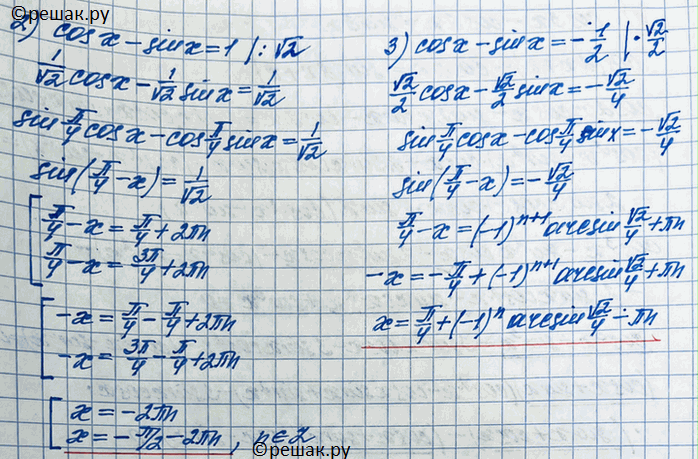 ©решак.ру
2) cos x - sin x = 1 |: √2
1/√2 cos x - 1/√2 sin x = 1/√2
sin π/4 cos x - cos π/4 sin x = 1/√2
sin(π/4 - x) = 1/√2
[ π/4 - x = π/4 + 2πn
π/4 - x = 3π/4 + 2πn
[ -x = π/4 - π/4 + 2πn
-x = 3π/4 - π/4 + 2πn
[ x = -2πn
x = -π/2 - 2πn, n∈Z
3) cos x - sin x = -1/2 |· √2/2
√2/2 cos x - √2/2 sin x = -√2/4
sin π/4 cos x - cos π/4 sin x = -√2/4
sin(π/4 - x) = -√2/4
π/4 - x = (-1)ⁿ⁺¹ arcsin √2/4 + πn
-x = -π/4 + (-1)ⁿ⁺¹ arcsin √2/4 + πn
x = π/4 + (-1)ⁿ arcsin √2/4 - πn
©решак.ру